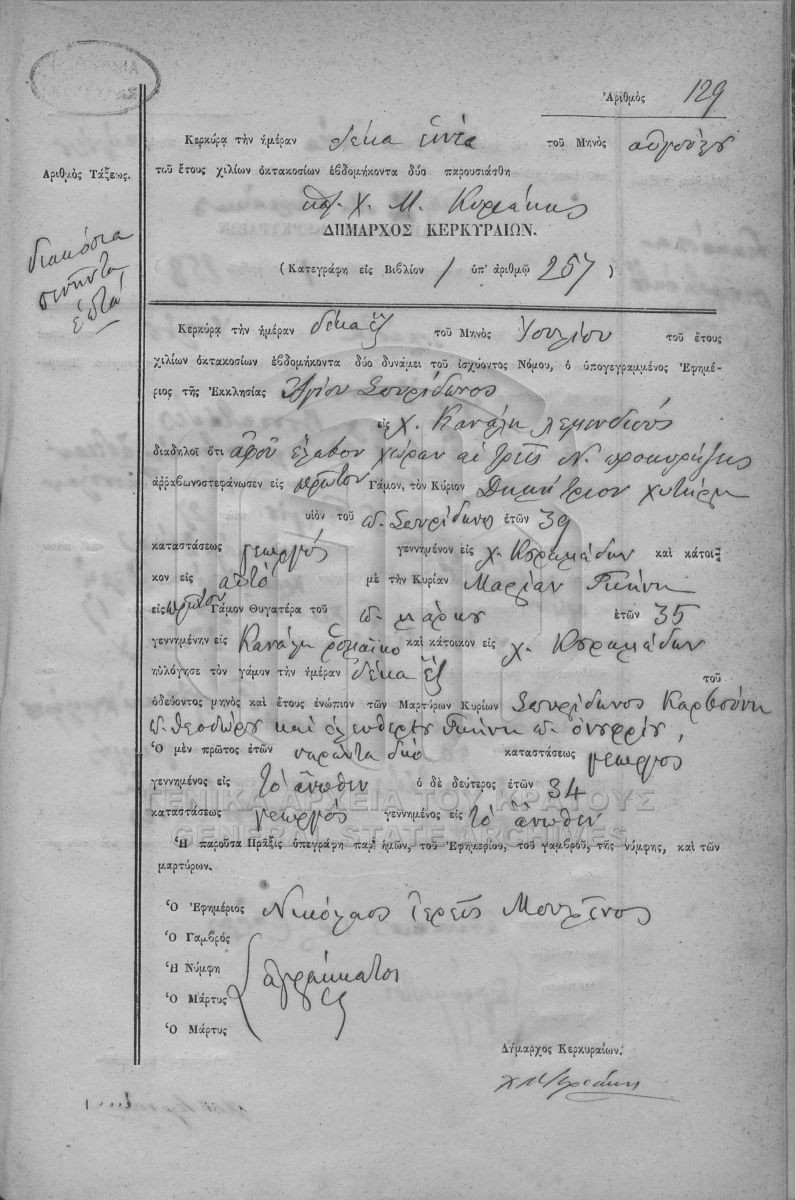 Ἀριθμὸς 129
Κερκύρᾳ τὴν ἡμέραν δέκα ἐννέα τοῦ Μηνὸς αὐγούστου
τοῦ ἔτους χιλίων ὀκτακοσίων ἑβδομήκοντα δύο παρουσιάσθη
Χ. Μ. Κυριάκης
ΔΗΜΑΡΧΟΣ ΚΕΡΚΥΡΑΙΩΝ.
(Κατεγράφη εἰς Βιβλίον 1 ὑπ' ἀριθμῷ 257)
Ἀριθμὸς Τάξεως.
διακόσια
πενῆντα
ἑπτά
Κερκύρᾳ τὴν ἡμέραν δέκα ἕξ τοῦ Μηνὸς Ἰουλίου τοῦ ἔτους
χιλίων ὀκτακοσίων ἑβδομήκοντα δύο δυνάμει τοῦ ἰσχύοντος Νόμου, ὁ ὑπογεγραμμένος Ἐφημέ-
ριος τῆς Ἐκκλησίας Ἁγίου Σπυρίδωνος
εἰς χ. Κανάλη
διαδηλοῖ ὅτι ἀφοῦ ἔλαβον χώραν αἱ τρεῖς Ν. προκυρήξεις
ἀρραβωνοστεφάνωσεν εἰς πρῶτον Γάμον, τὸν Κύριον Δημήτριον Χυτήρη
υἱὸν τοῦ π. Σπυρίδωνο ἐτῶν 39
καταστάσεως γεωργός γεννημένον εἰς χ. Κυραμάδων καὶ κάτοι-
κον εἰς αὐτό μὲ τὴν Κυρίαν Μαρίαν Γκίνη
εἰς πρῶτον Γάμον Θυγατέρα τοῦ π. μάρκου ἐτῶν 35
γεννημένην εἰς Κανάλη καὶ κάτοικον εἰς χ. Κυραμάδων
ηὐλόγησε τὸν γάμον τὴν ἡμέραν δέκα ἕξ τοῦ
ὁδεύοντος μηνὸς καὶ ἔτους ἐνώπιον τῶν Μαρτύρων Κυρίων Σπυρίδωνος Καρσούνη
π. θεοδώρου καὶ ἐλευθερίου Γκίνη π. ὀνυφρίου,
Ὁ μὲν πρῶτος ἐτῶν σαράντα δύο καταστάσεως γεωργός
γεννημένος εἰς τὸ ἄνωθεν ὁ δὲ δεύτερος ἐτῶν 34
καταστάσεως γεωργός γεννημένος εἰς τὸ ἄνωθεν
ΓΕΝΙΚΑ ΑΡΧΕΙΑ ΤΟΥ ΚΡΑΤΟΥΣ
GENERAL STATE ARCHIVES
Ἡ παροῦσα Πρᾶξις ὑπεγράφη παρ' ἡμῶν, τοῦ Ἐφημερίου, τοῦ γαμβροῦ, τῆς νύμφης, καὶ τῶν
μαρτύρων.
Ὁ Ἐφημέριος Νικόλαος ἱερεὺς
Ὁ Γαμβρὸς
Ἡ Νύμφη ἀγράμματοι
Ὁ Μάρτυς
Ὁ Μάρτυς
Δήμαρχος Κερκυραίων.
Χ Μ Κυριάκης